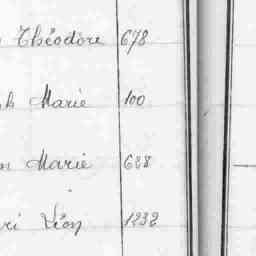 Théodore 678
h Marie 100
n Marie 688
ri Léon 1232